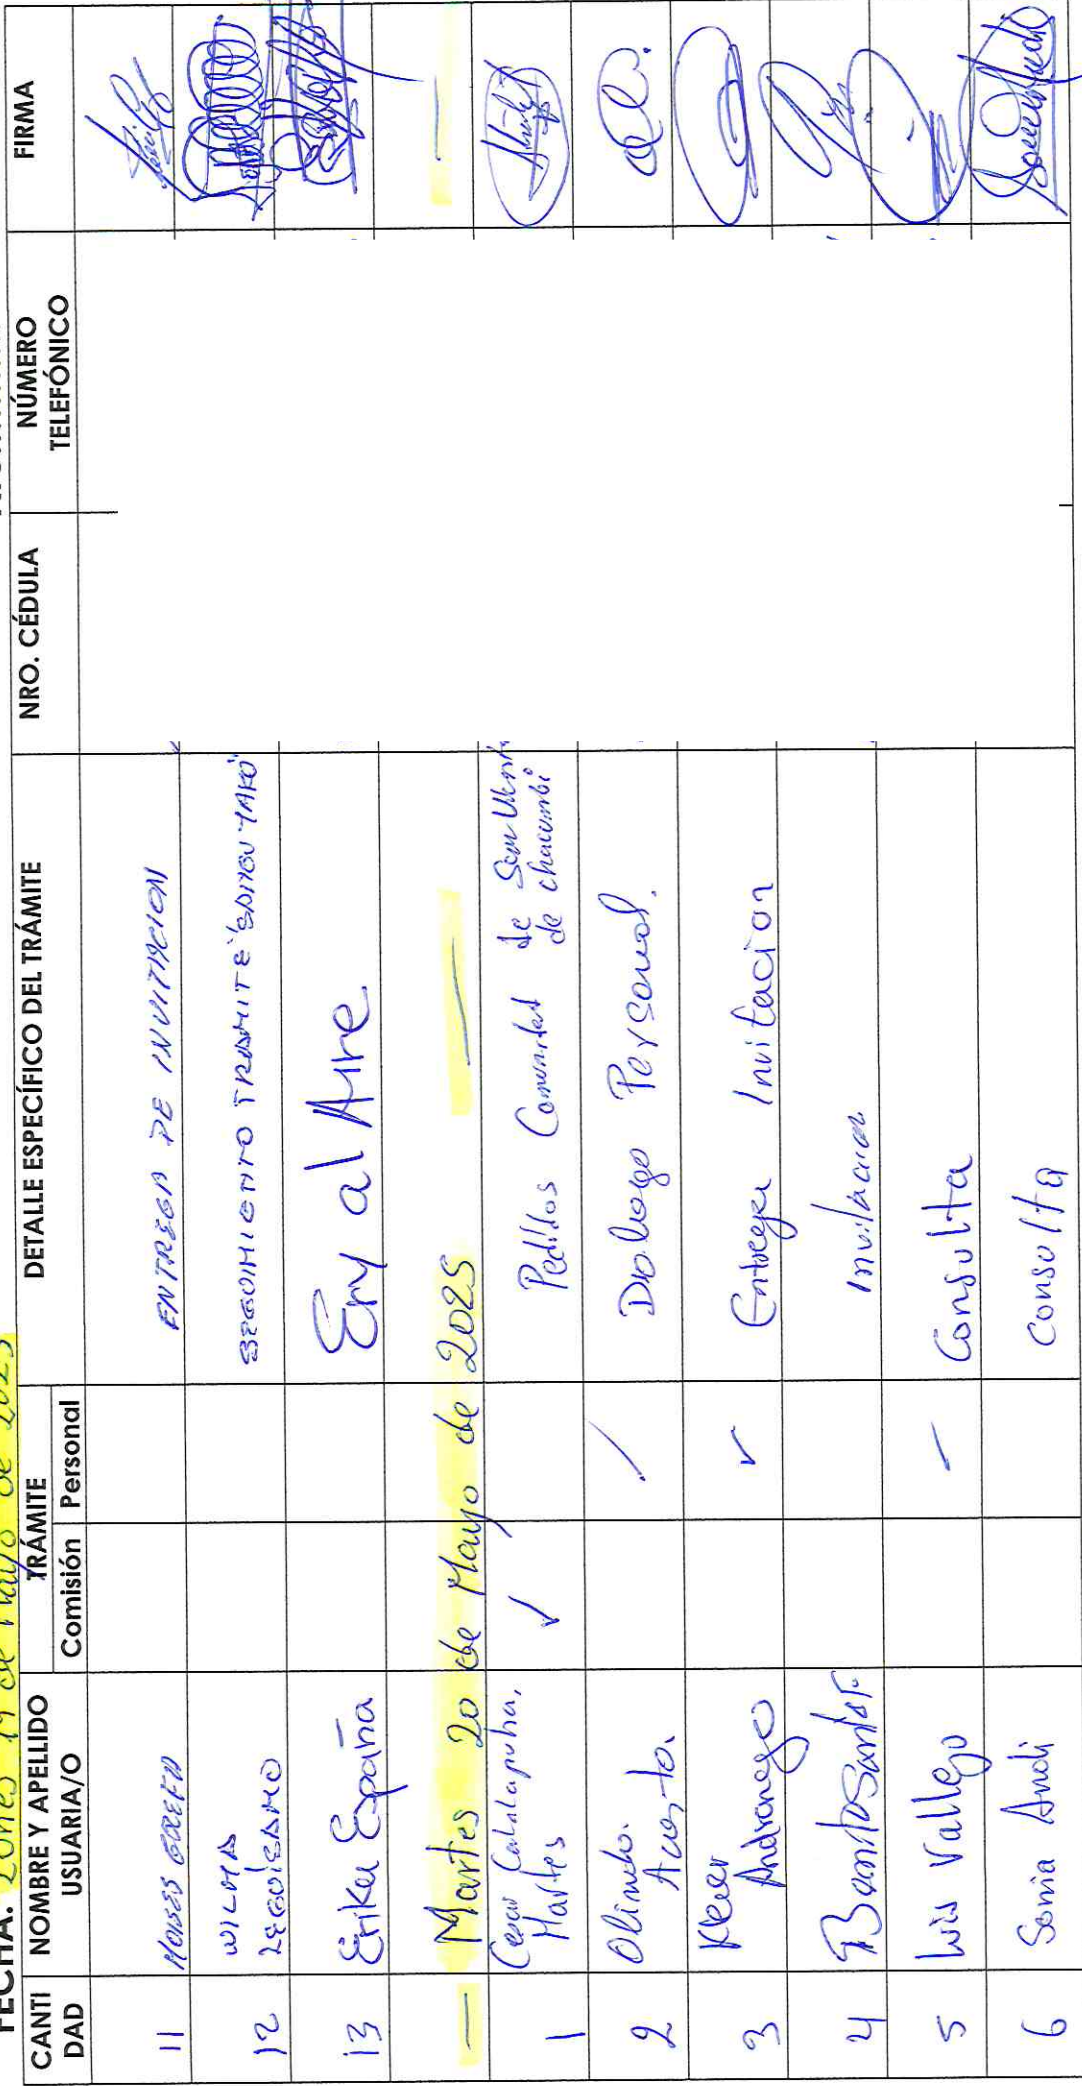 FECHA: Lunes 19 de Mayo de 2025
CANTI DAD
NOMBRE Y APELLIDO USUARIA/O
TRÁMITE
Comisión
Personal
DETALLE ESPECÍFICO DEL TRÁMITE
NRO. CÉDULA
NÚMERO TELEFÓNICO
FIRMA
11 MOISES ENTREGA DE INVITACION
12 WILMA SEGUIMIENTO TRAMITE
13 Erika España Eny al Aire
— Martes 20 de Mayo de 2025 — —
1 Cesar Martes ✓ Pedidos Comunidad de San de chacumbi
2 Olindo. Acosta. / Dialogo Personal.
3 Klever Andranago ✓ Entrega Invitacion
4 Invitacion
5 Luis Vallejo – Consulta
6 Sonia Andi Consulta